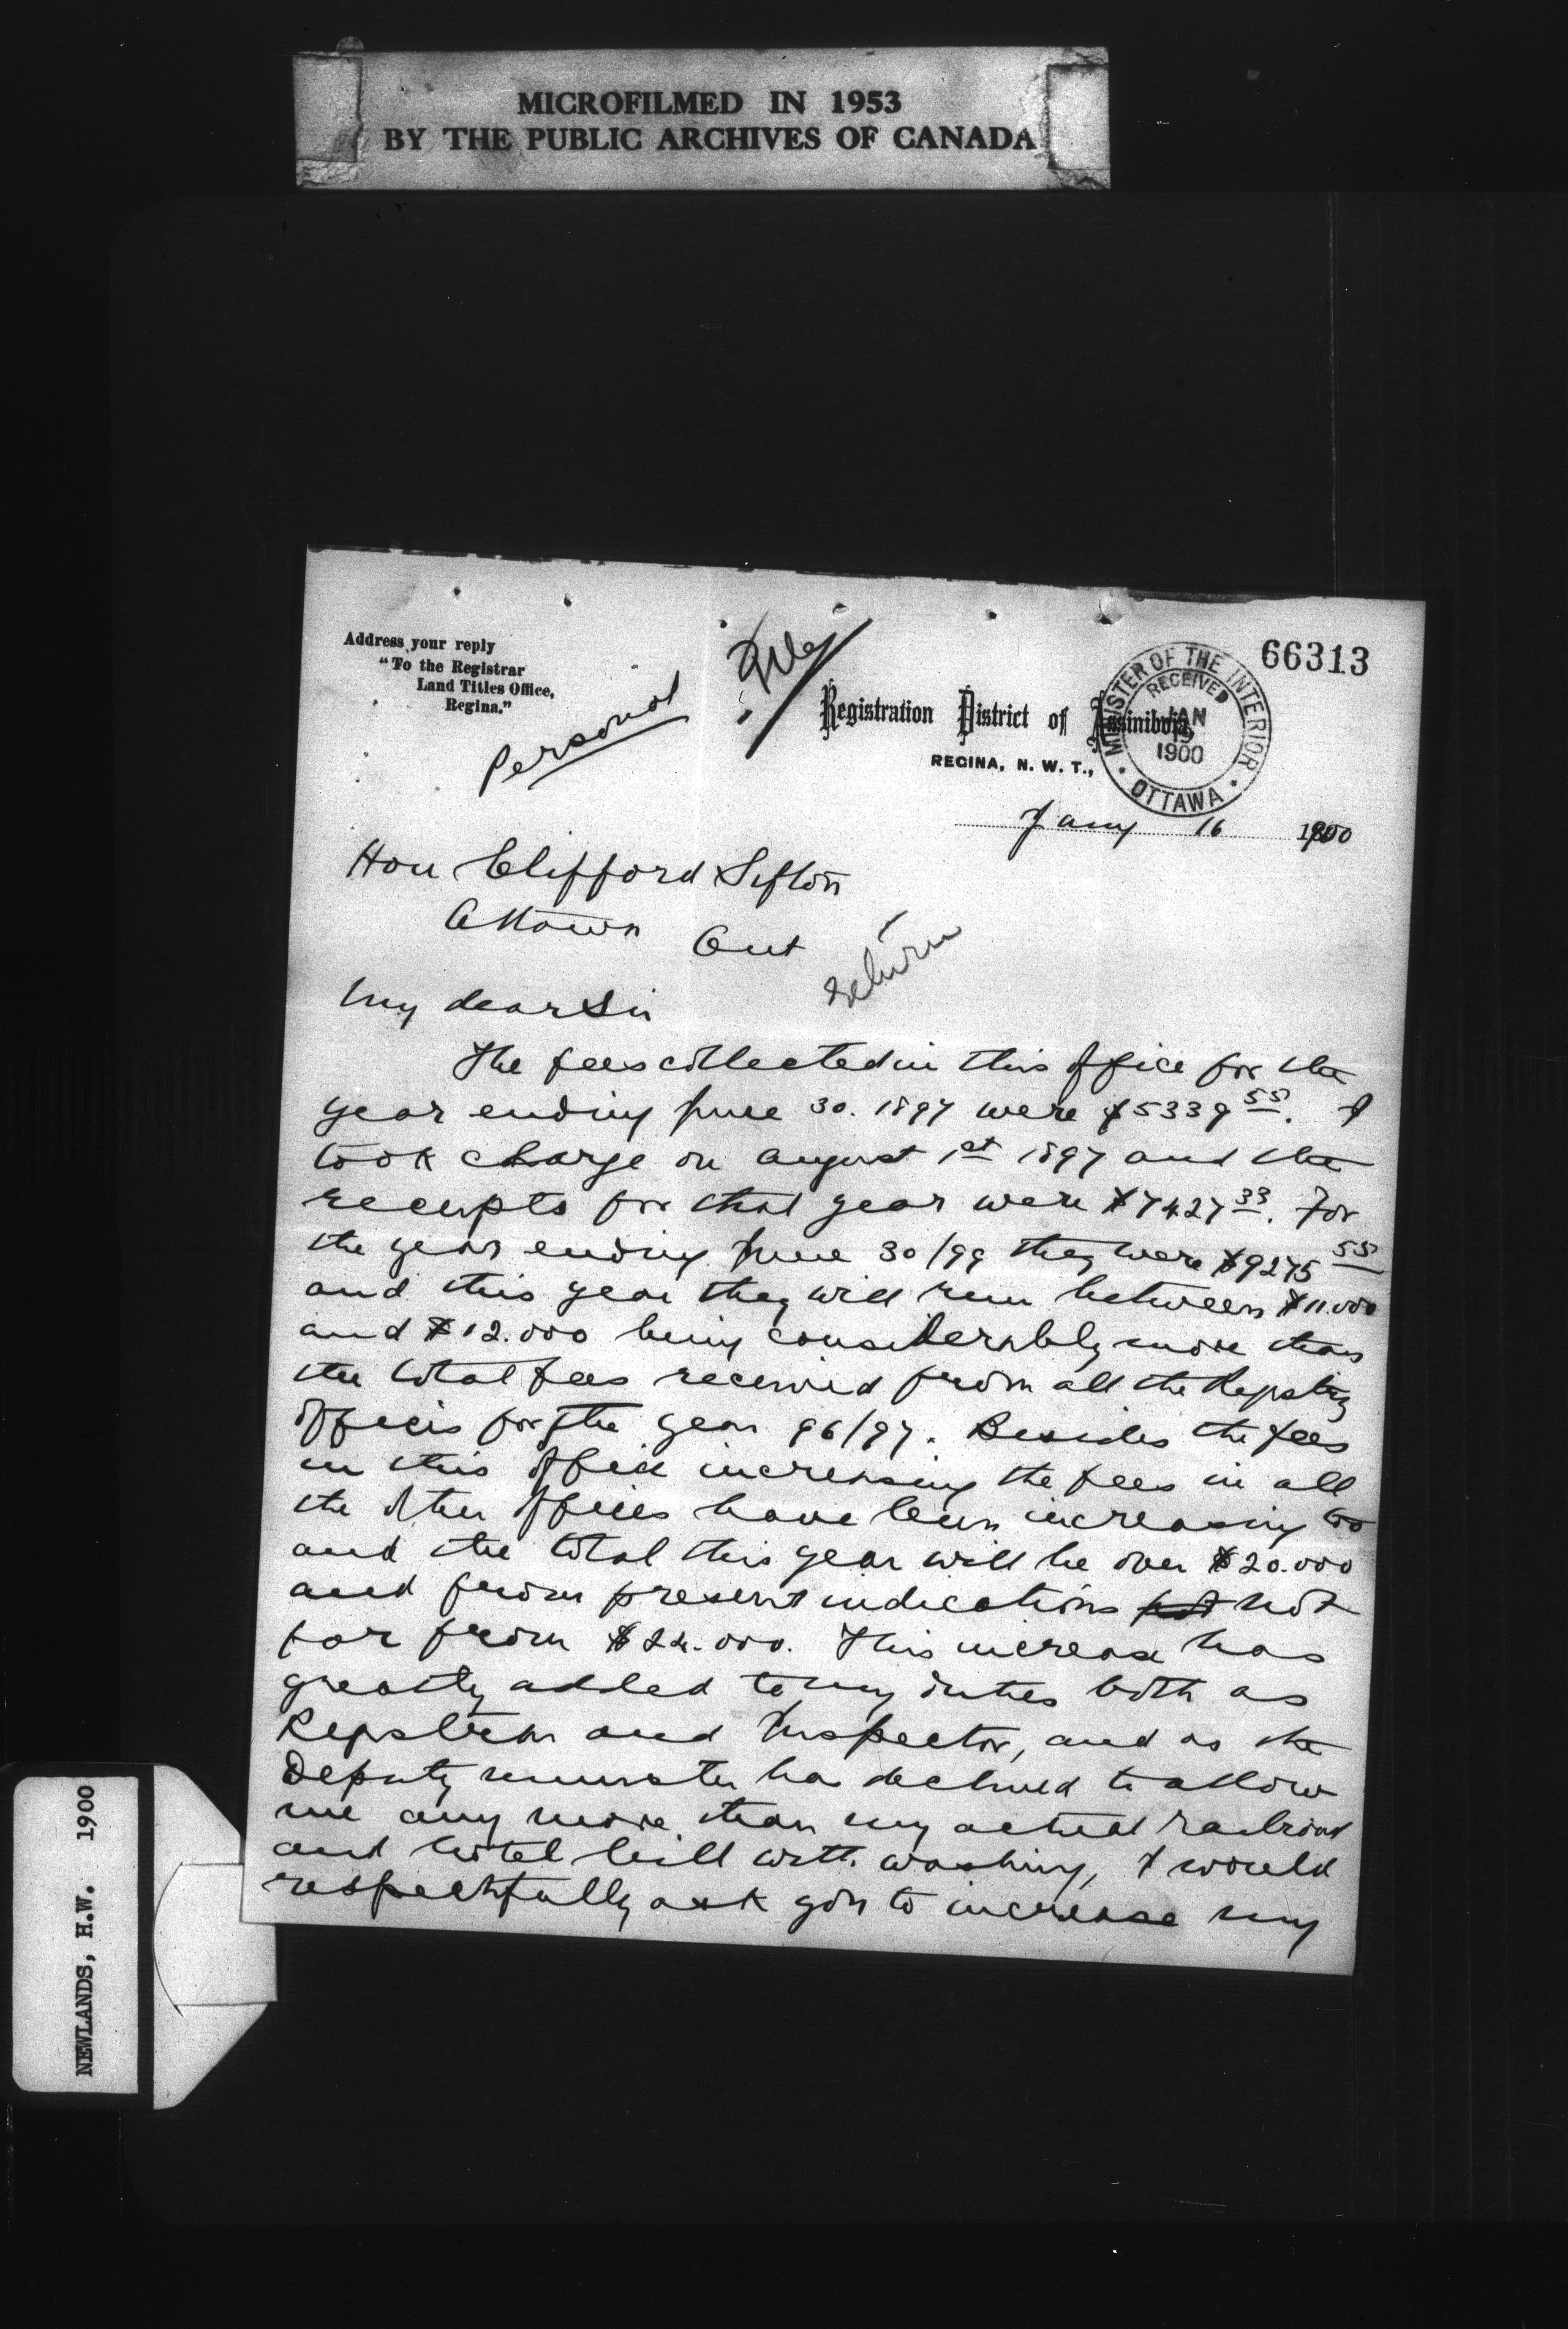 MICROFILMED IN 1953
BY THE PUBLIC ARCHIVES OF CANADA
66313
Address your reply
"To the Registrar
Land Titles Office,
Regina."
Personal
Registration District of Assiniboia,
REGINA, N. W. T.,
MINISTER OF THE INTERIOR
RECEIVED
JAN
19
1900
OTTAWA
Jany 16 1900
Hon Clifford Sifton
Ottawa Ont
return
My dear Sir
The fees collected in this office for the
year ending June 30. 1897 were $5339 55. I
took charge on august 1st 1897 and the
receipts for that year were $7427 33. For
the year ending June 30/99 they were $9275 55
and this year they will run between $11.000
and $12.000 being considerably more than
the total fees received from all the Registry
offices for the year 96/97. Besides the fees
in this office increasing the fees in all
the other offices have been increasing too
and the total this year will be over $20.000
and from present indications not
far from $24.000. This increase has
greatly added to my duties both as
Registrar and Inspector, and as the
Deputy minister has declined to allow
me any more than my actual railroad
and hotel bill with washing, I would
respectfully ask you to increase my
NEWLANDS, H.W. 1900